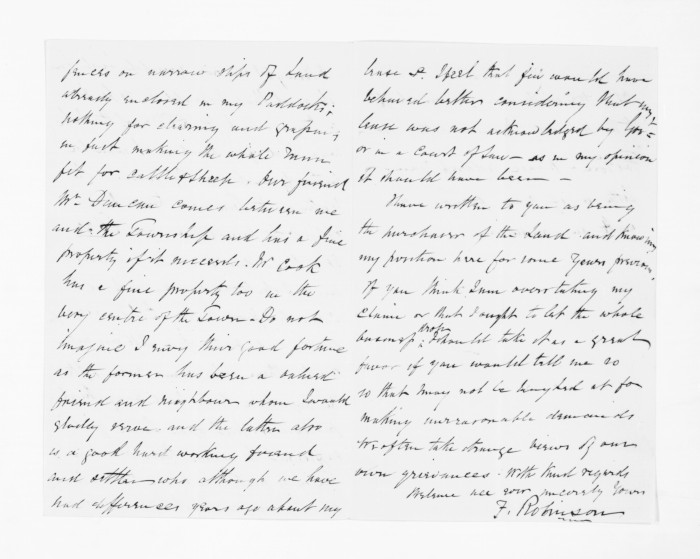 fences on narrow strips of Land
already enclosed in my Paddocks;
nothing for clearing and
in fact making the whole
fit for Cattle & Sheep. Our friend
Mr. Duncan comes between me
and the Township and has a fine
property if it succeeds. Mr Cook
has a fine property too in the
very centre of the Town - Do not
imagine I envy their good fortune
as the former has been a valued
friend and neighbour whom I would
gladly serve and the latter also
is a good hard working friend
and settler who although we have
had differences years ago about my
lease &. I feel that few would have
behaved better considering that my
lease was not acknowledged by Govt -
or in a Court of Law - as in my opinion
it should have been -
I have written to you as being
the purchaser of the Land and knowing
my position here for some years previous,
If you think I am overstating my
claims or that I ought to let the whole
business drop I should take it as a great
favor if you would tell me so
so that I may not be laughed at for
making unreasonable demands
We often take strange views of our
own grievances. With kind regards
Believe me ever sincerely Yours
F. Robinson